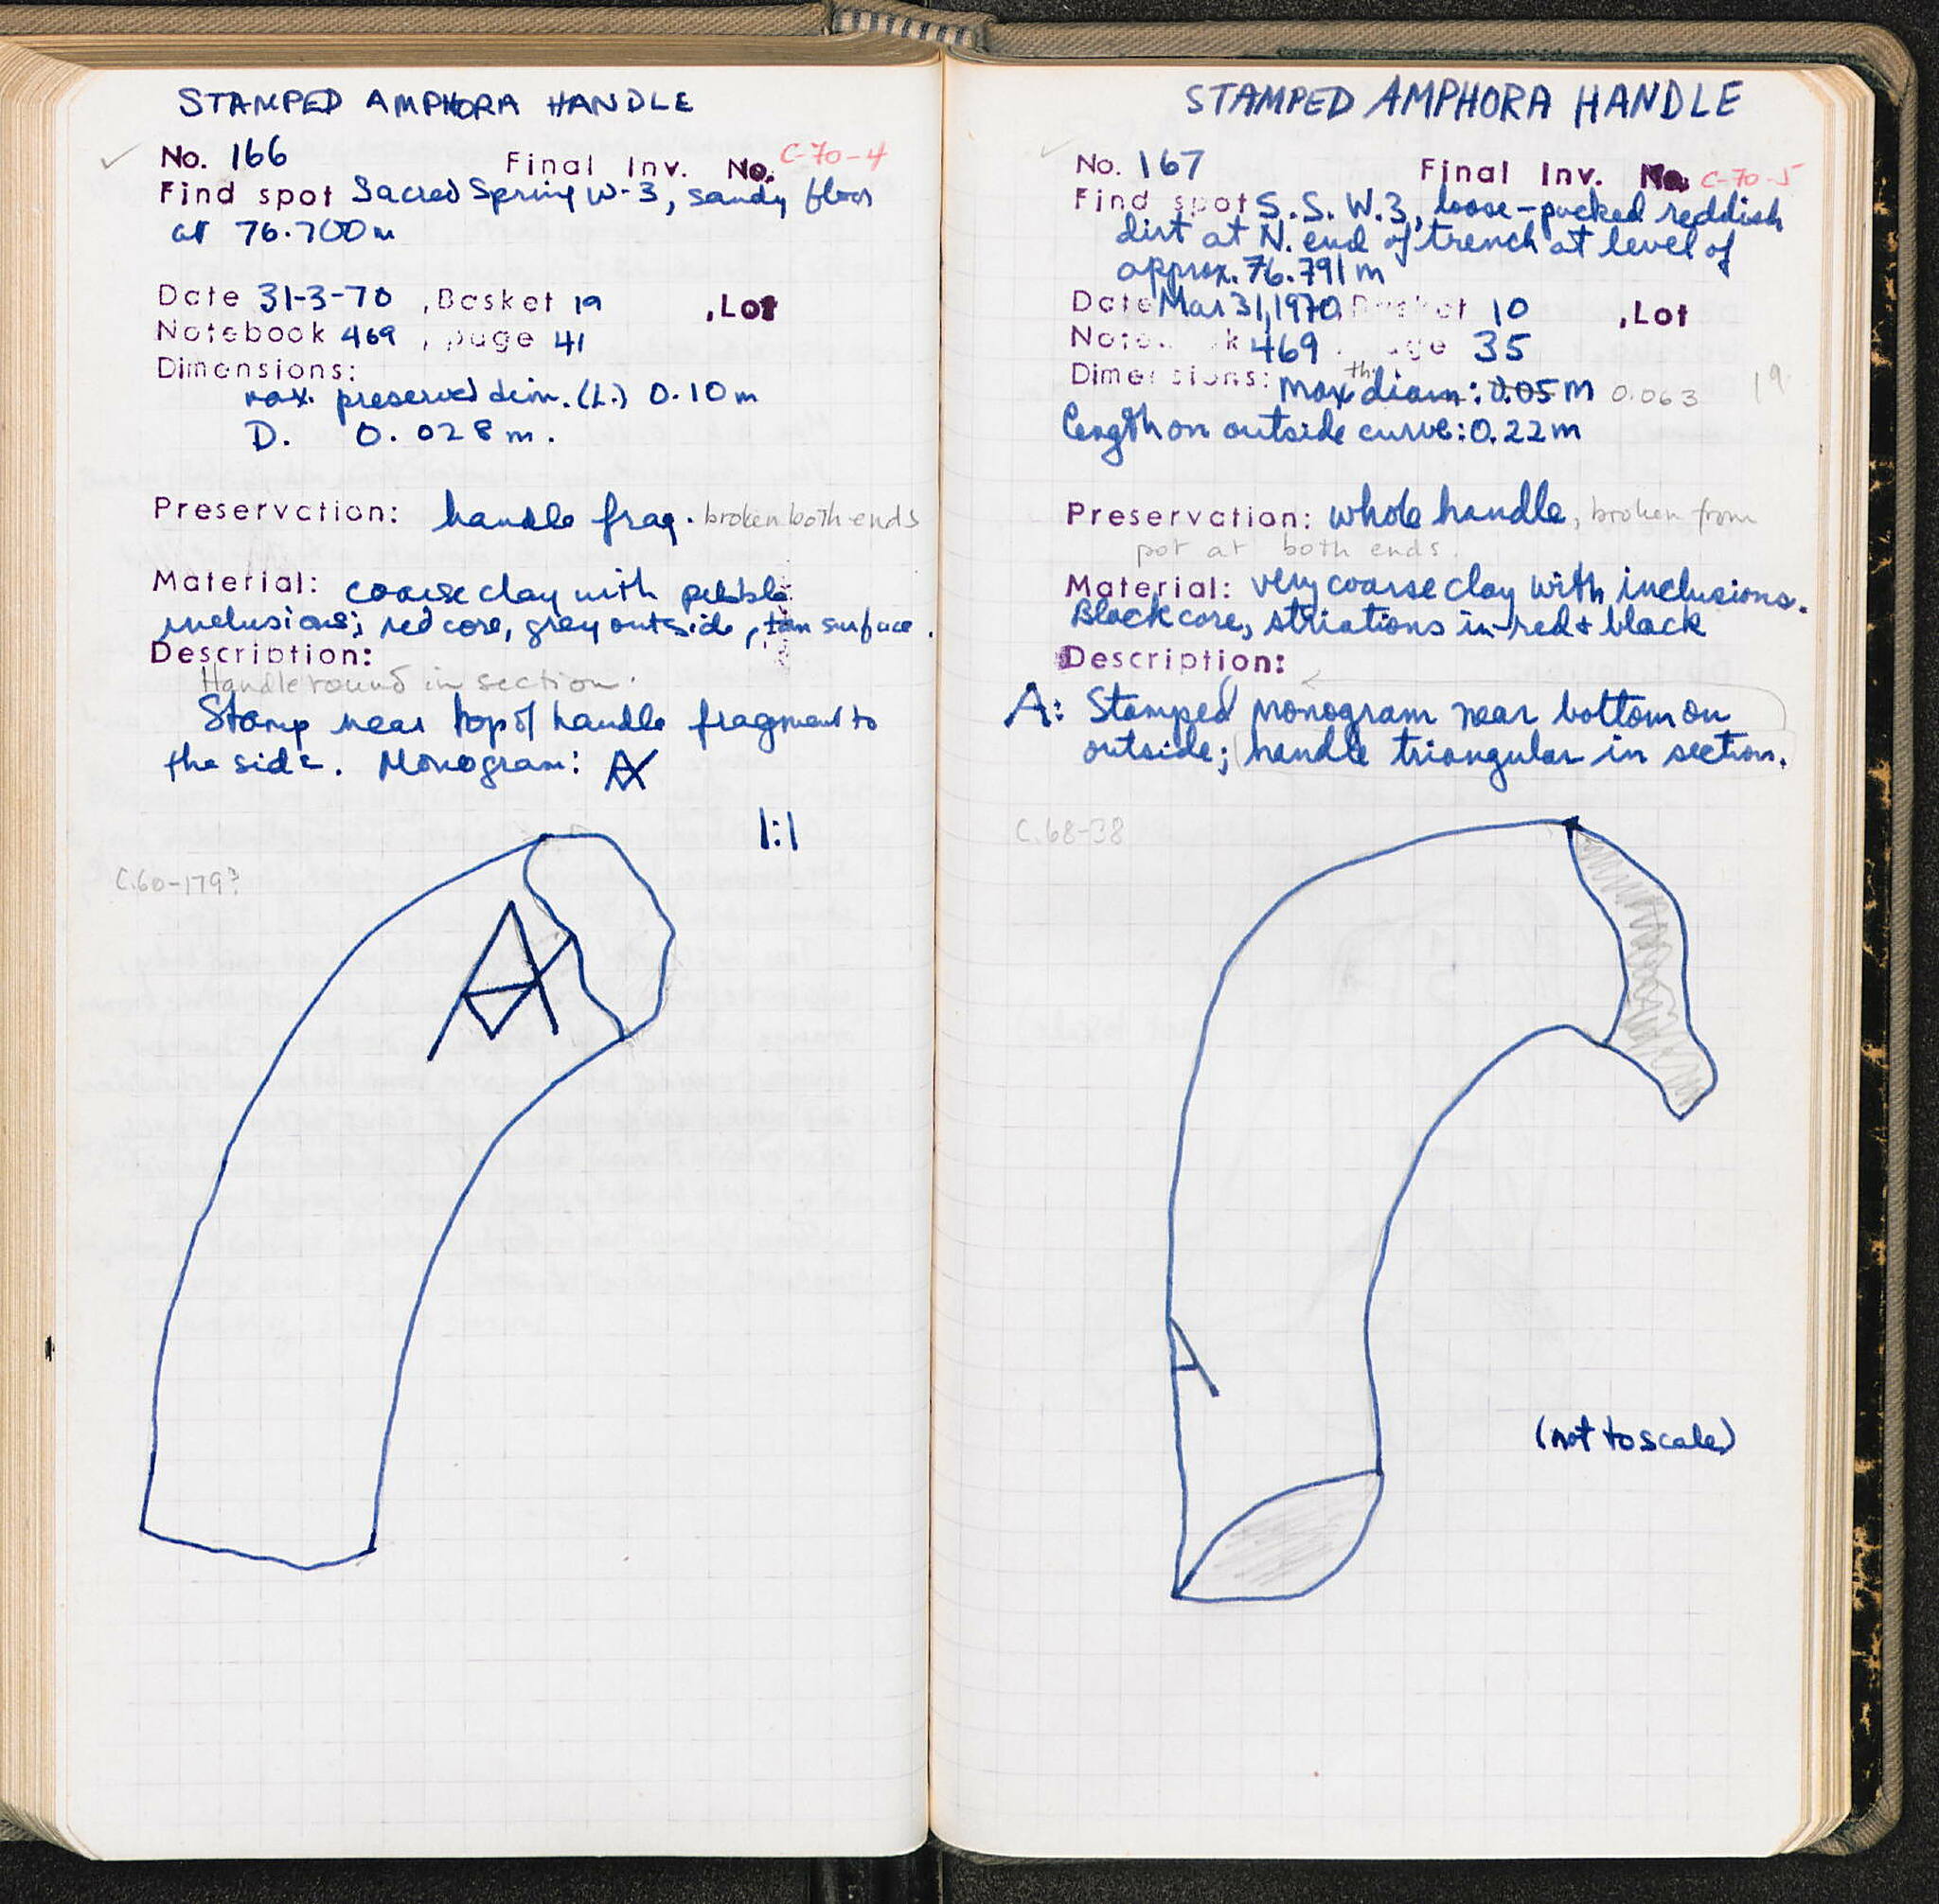 STAMPED AMPHORA HANDLE
No. 166 Final Inv. No. C-70-4
Find spot Sacred Spring W-3, sandy floor
at 76.700m
Date 31-3-70 , Basket 19 , Lot
Notebook 469 , page 41
Dimensions:
max. preserved dim. (L.) 0.10m
D. 0.028m.
Preservation: handle frag. broken both ends
Material: coarse clay with pebble
inclusions; red core, grey outside, tan surface.
Description:
Handle round in section.
Stamp near top of handle fragment to
the side. Monogram:
1:1
C.60-179?
STAMPED AMPHORA HANDLE
No. 167 Final Inv. No. C-70-5
Find spot S.S. W.3, loose-packed reddish
dirt at N. end of trench at level of
approx. 76.791m
Date Mar 31, 1970, Basket 10 , Lot
19
Notebook 469 page 35
Dimensions: Max diam: 0.05m 0.063
th.
Length on outside curve: 0.22m
Preservation: whole handle, broken from
pot at both ends.
Material: very coarse clay with inclusions.
Black core, striations in red & black
Description:
A: Stamped monogram near bottom on
outside; handle triangular in section.
C.68-38
A
(not to scale)